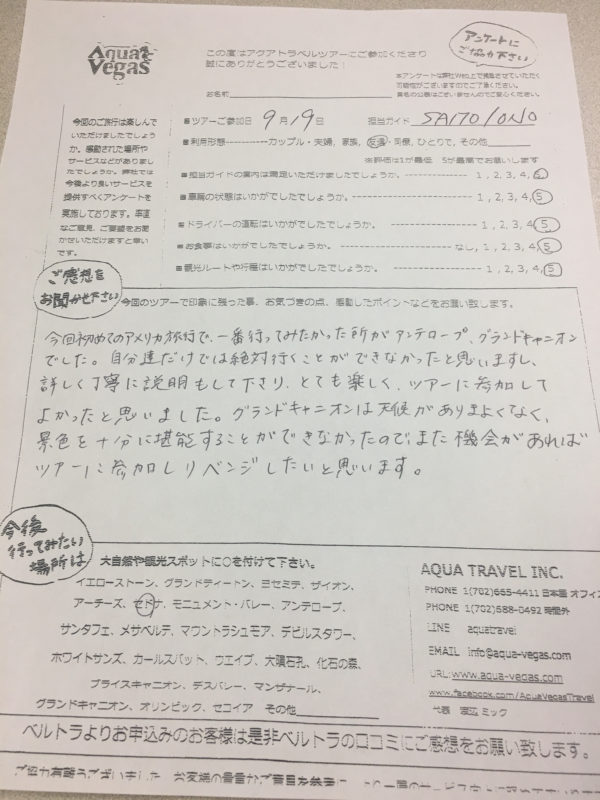 Aqua Vegas
この度はアクアトラベルツアーにご参加くださり
誠にありがとうございました！
アンケートに
ご協力下さい
本アンケートは弊社Web上で掲載させていただく
可能性がございますのでご了承ください。
お名前
今回のご旅行は楽しんで
いただけましたでしょう
か。感動された場所や
サービスなどがありまし
たでしょうか。弊社では
今後より良いサービスを
提供すべくアンケートを
実施しております。率直
なご意見、ご要望をお聞
かせいただけますと幸い
です。
■ツアーご参加日 9月19日 担当ガイド SAITO/ONO
■利用形態 カップル・夫婦, 家族, 友達・同僚, ひとりで, その他
※評価は1が最低、5が最高でお願いします
■担当ガイドの案内は満足いただけましたでしょうか。 1, 2, 3, 4, 5
■車輌の状態はいかがでしたでしょうか。 1, 2, 3, 4, 5
■ドライバーの運転はいかがでしたでしょうか。 1, 2, 3, 4, 5
■お食事はいかがでしたでしょうか。 なし, 1, 2, 3, 4, 5
■観光ルートや行程はいかがでしたでしょうか。 1, 2, 3, 4, 5
ご感想を
お聞かせ下さい
今回のツアーで印象に残った事、お気づきの点、感動したポイントなどをお願い致します。
今回初めてのアメリカ旅行で、一番行ってみたかった所がアンテロープ、グランドキャニオン
でした。自分達だけでは絶対行くことができなかったと思いますし、
詳しく丁寧に説明もして下さり、とても楽しく、ツアーに参加して
よかったと思いました。グランドキャニオンは天候があまりよくなく、
景色を十分に堪能することができなかったので、また機会があれば
ツアーに参加しリベンジしたいと思います。
今後
行ってみたい
場所は
大自然や観光スポットに○を付けて下さい。
イエローストーン、グランドティートン、ヨセミテ、ザイオン、
アーチーズ、セドナ、モニュメント・バレー、アンテロープ、
サンタフェ、メサベルデ、マウントラシュモア、デビルスタワー、
ホワイトサンズ、カールスバット、ウエイブ、大隕石孔、化石の森、
ブライスキャニオン、デスバレー、マンザナール、
グランドキャニオン、オリンピック、セコイア その他
AQUA TRAVEL INC.
PHONE 1(702)665-4411 日本語 オフィ
PHONE 1(702)688-0492 時間外
LINE aquatravel
EMAIL info@aqua-vegas.com
URL:www.aqua-vegas.com
www.facebook.com/AquaVegasTravel
代表 ミック
ベルトラよりお申込みのお客様は是非ベルトラの口コミにご感想をお願い致します。